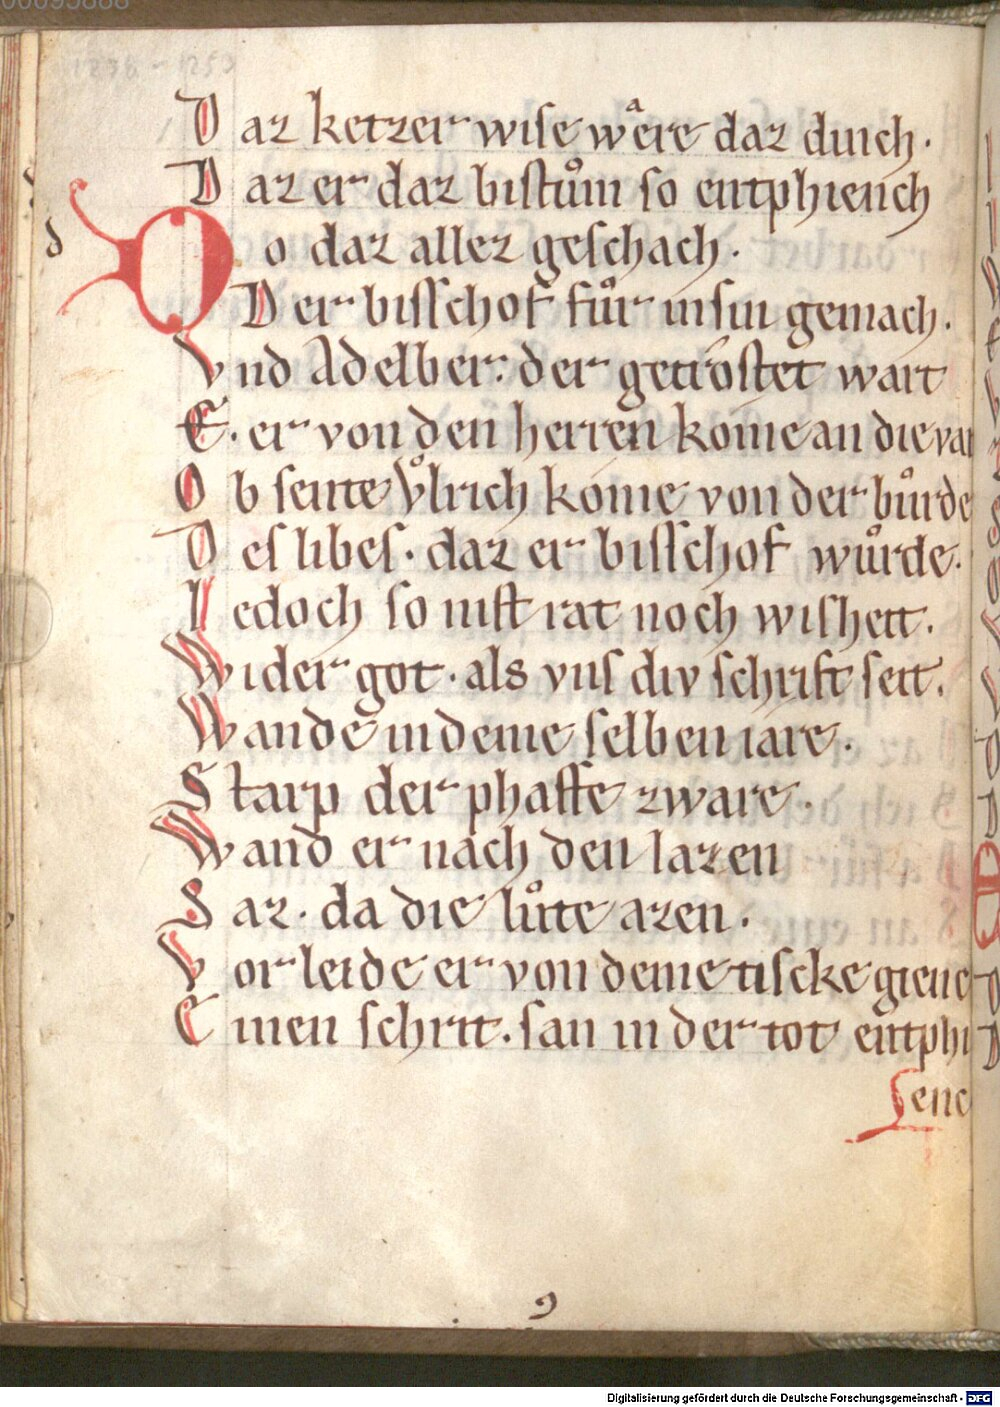 00095888
1238 - 1253
Daz ketzer wise wåere daz durch.
Daz er daz bistům so entphiench
d
Do daz allez geschach.
Der bisschof fůr in sin gemach.
Vnd Adelber. der getröstet wart
E. er von den herren kome an die var
Ob sente Vͦlrich kome von der bůrde
Des libes. daz er bisschof wůrde.
Iedoch so nist rat noch wisheit.
Wider got. als vns div schrift seit.
Wande in deme selben iare.
Starp der phaffe zware.
Wand er nach den lazen
Saz. da die lůte azen.
Vor leide er von deme tiscke gienc
Einen schrit. san in der tot entphi
enc
9
Digitalisierung gefördert durch die Deutsche Forschungsgemeinschaft - DFG